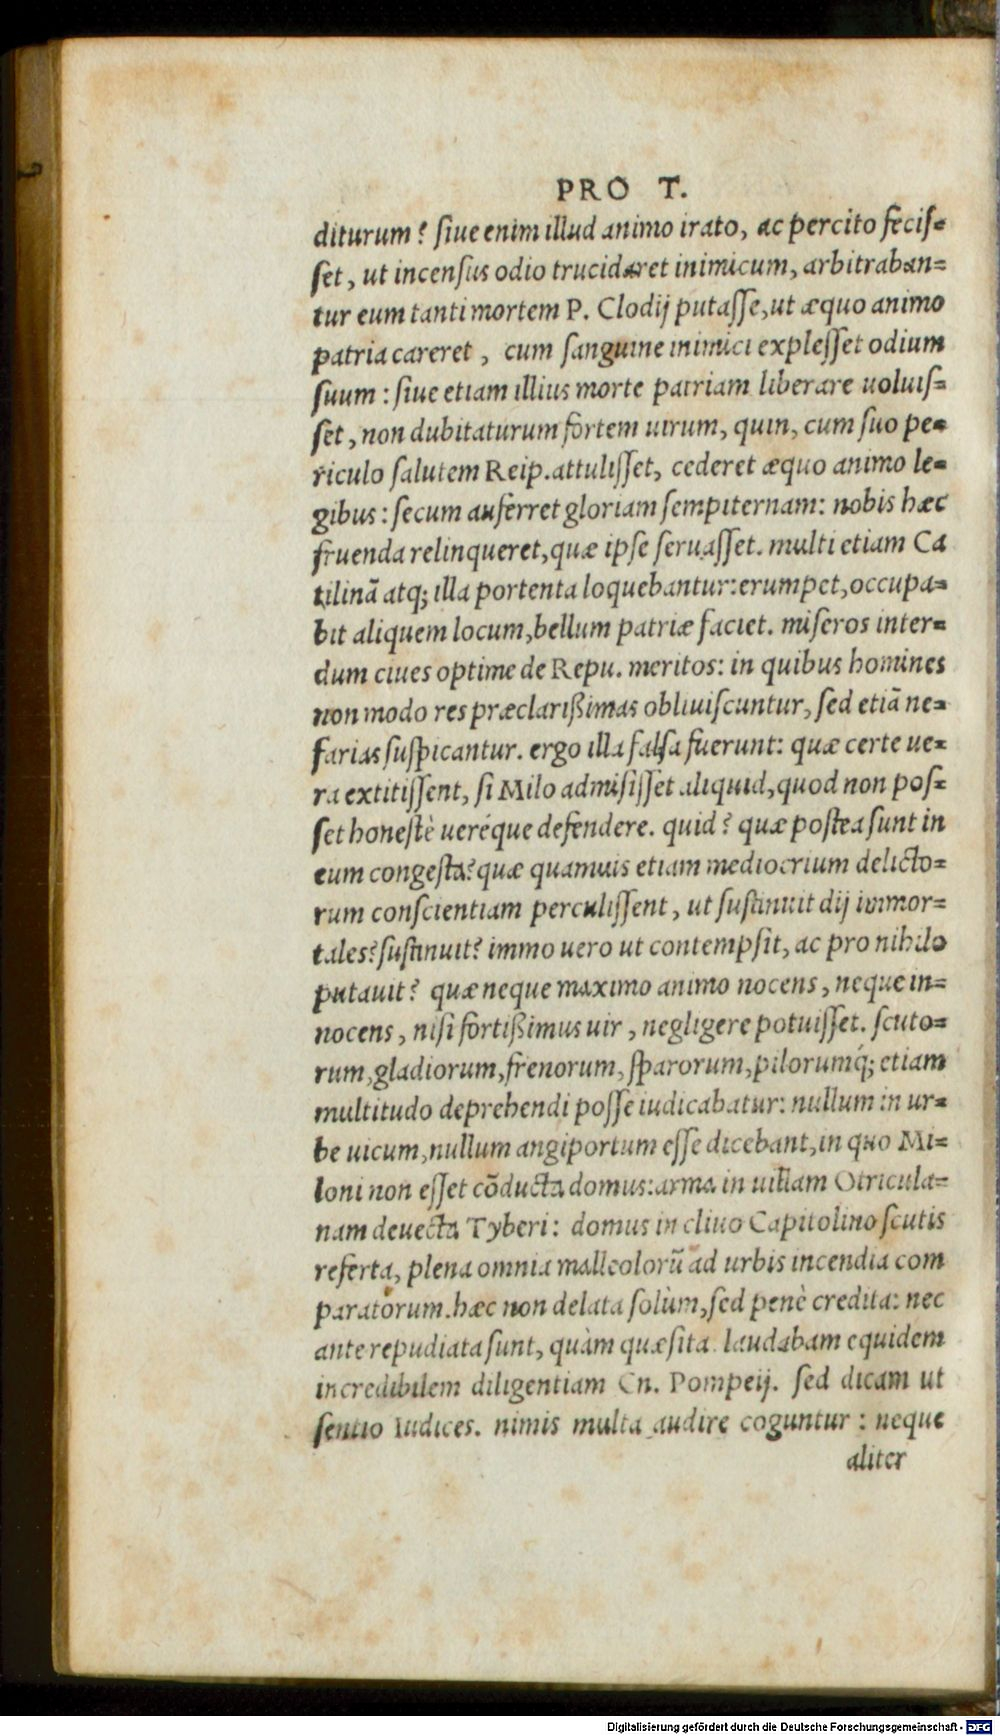 PRO T.
diturum? siue enim illud animo irato, ac percito fecis=
set, ut incensus odio trucidaret inimicum, arbitraban=
tur eum tanti mortem P. Clodij putasse, ut æquo animo
patria careret, cum sanguine inimici explesset odium
suum: siue etiam illius morte patriam liberare uoluis=
set, non dubitaturum fortem uirum, quin, cum suo pe=
riculo salutem Reip. attulisset, cederet æquo animo le=
gibus: secum auferret gloriam sempiternam: nobis hæc
fruenda relinqueret, quæ ipse seruasset. multi etiam Ca
tilinã atq; illa portenta loquebantur: erumpet, occupa=
bit aliquem locum, bellum patriæ faciet. miseros inter=
dum ciues optime de Repu. meritos: in quibus homines
non modo res præclarißimas obliuiscuntur, sed etiã ne=
farias suspicantur. ergo illa falsa fuerunt: quæ certe ue=
ra extitissent, si Milo admisisset aliquid, quod non pos=
set honestè ueréque defendere. quid? quæ postea sunt in
eum congesta? quæ quamuis etiam mediocrium delicto=
rum conscientiam perculissent, ut sustinuit dij immor=
tales? sustinuit? immo uero ut contempsit, ac pro nihilo
putauit? quæ neque maximo animo nocens, neque in=
nocens, nisi fortißimus uir, negligere potuisset. scuto=
rum, gladiorum, frenorum, sparorum, pilorumq́; etiam
multitudo deprehendi posse iudicabatur: nullum in ur=
be uicum, nullum angiportum esse dicebant, in quo Mi=
loni non esset cõducta domus: arma in uillam Otricula=
nam deuecta Tyberi: domus in cliuo Capitolino scutis
referta, plena omnia malleolorũ ad urbis incendia com
paratorum. hæc non delata solùm, sed penè credita: nec
ante repudiata sunt, quàm quæsita. laudabam equidem
incredibilem diligentiam Cn. Pompeij. sed dicam ut
sentio Iudices. nimis multa audire coguntur: neque
aliter
Digitalisierung gefördert durch die Deutsche Forschungsgemeinschaft - DFG